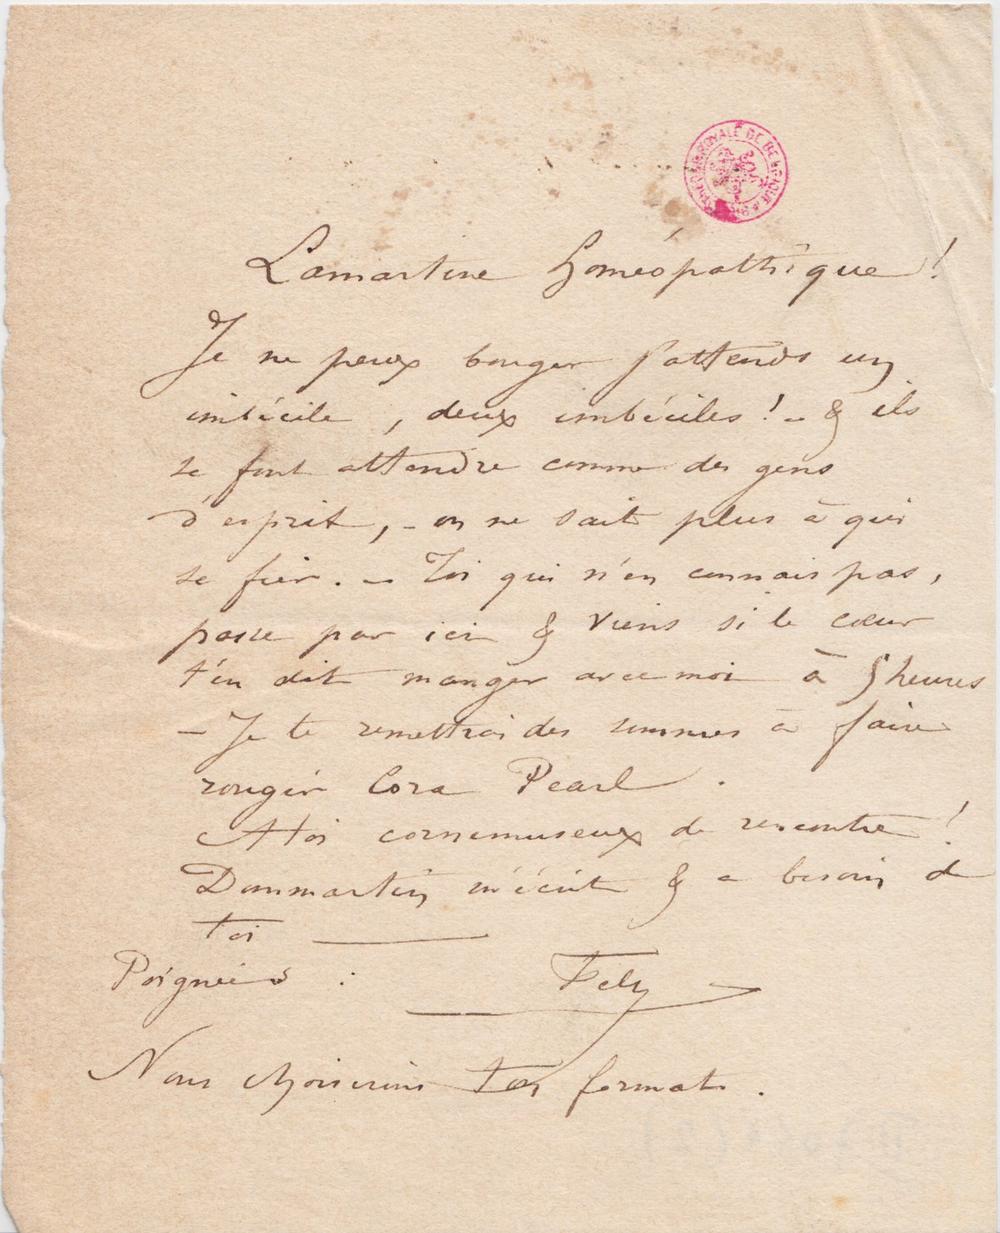 BIBLIOTHECA REGIA
Lamartine homéopathique !
Je ne peux bouger j'attends un
imbécile, deux imbéciles ! – & ils
se font attendre comme des gens
d'esprit, – on ne sait plus à qui
se fier. – Toi qui n'en connais pas,
passe par ici & viens si le cœur
t'en dit manger avec moi à 5 heures
– Je te remettrai des sommes à faire
rougir Cora Pearl.
A toi cornemuseux de rencontre !
Dommartin m'écrit & a besoin de
toi
Poignées. Fély
Nous choisirons ton format.